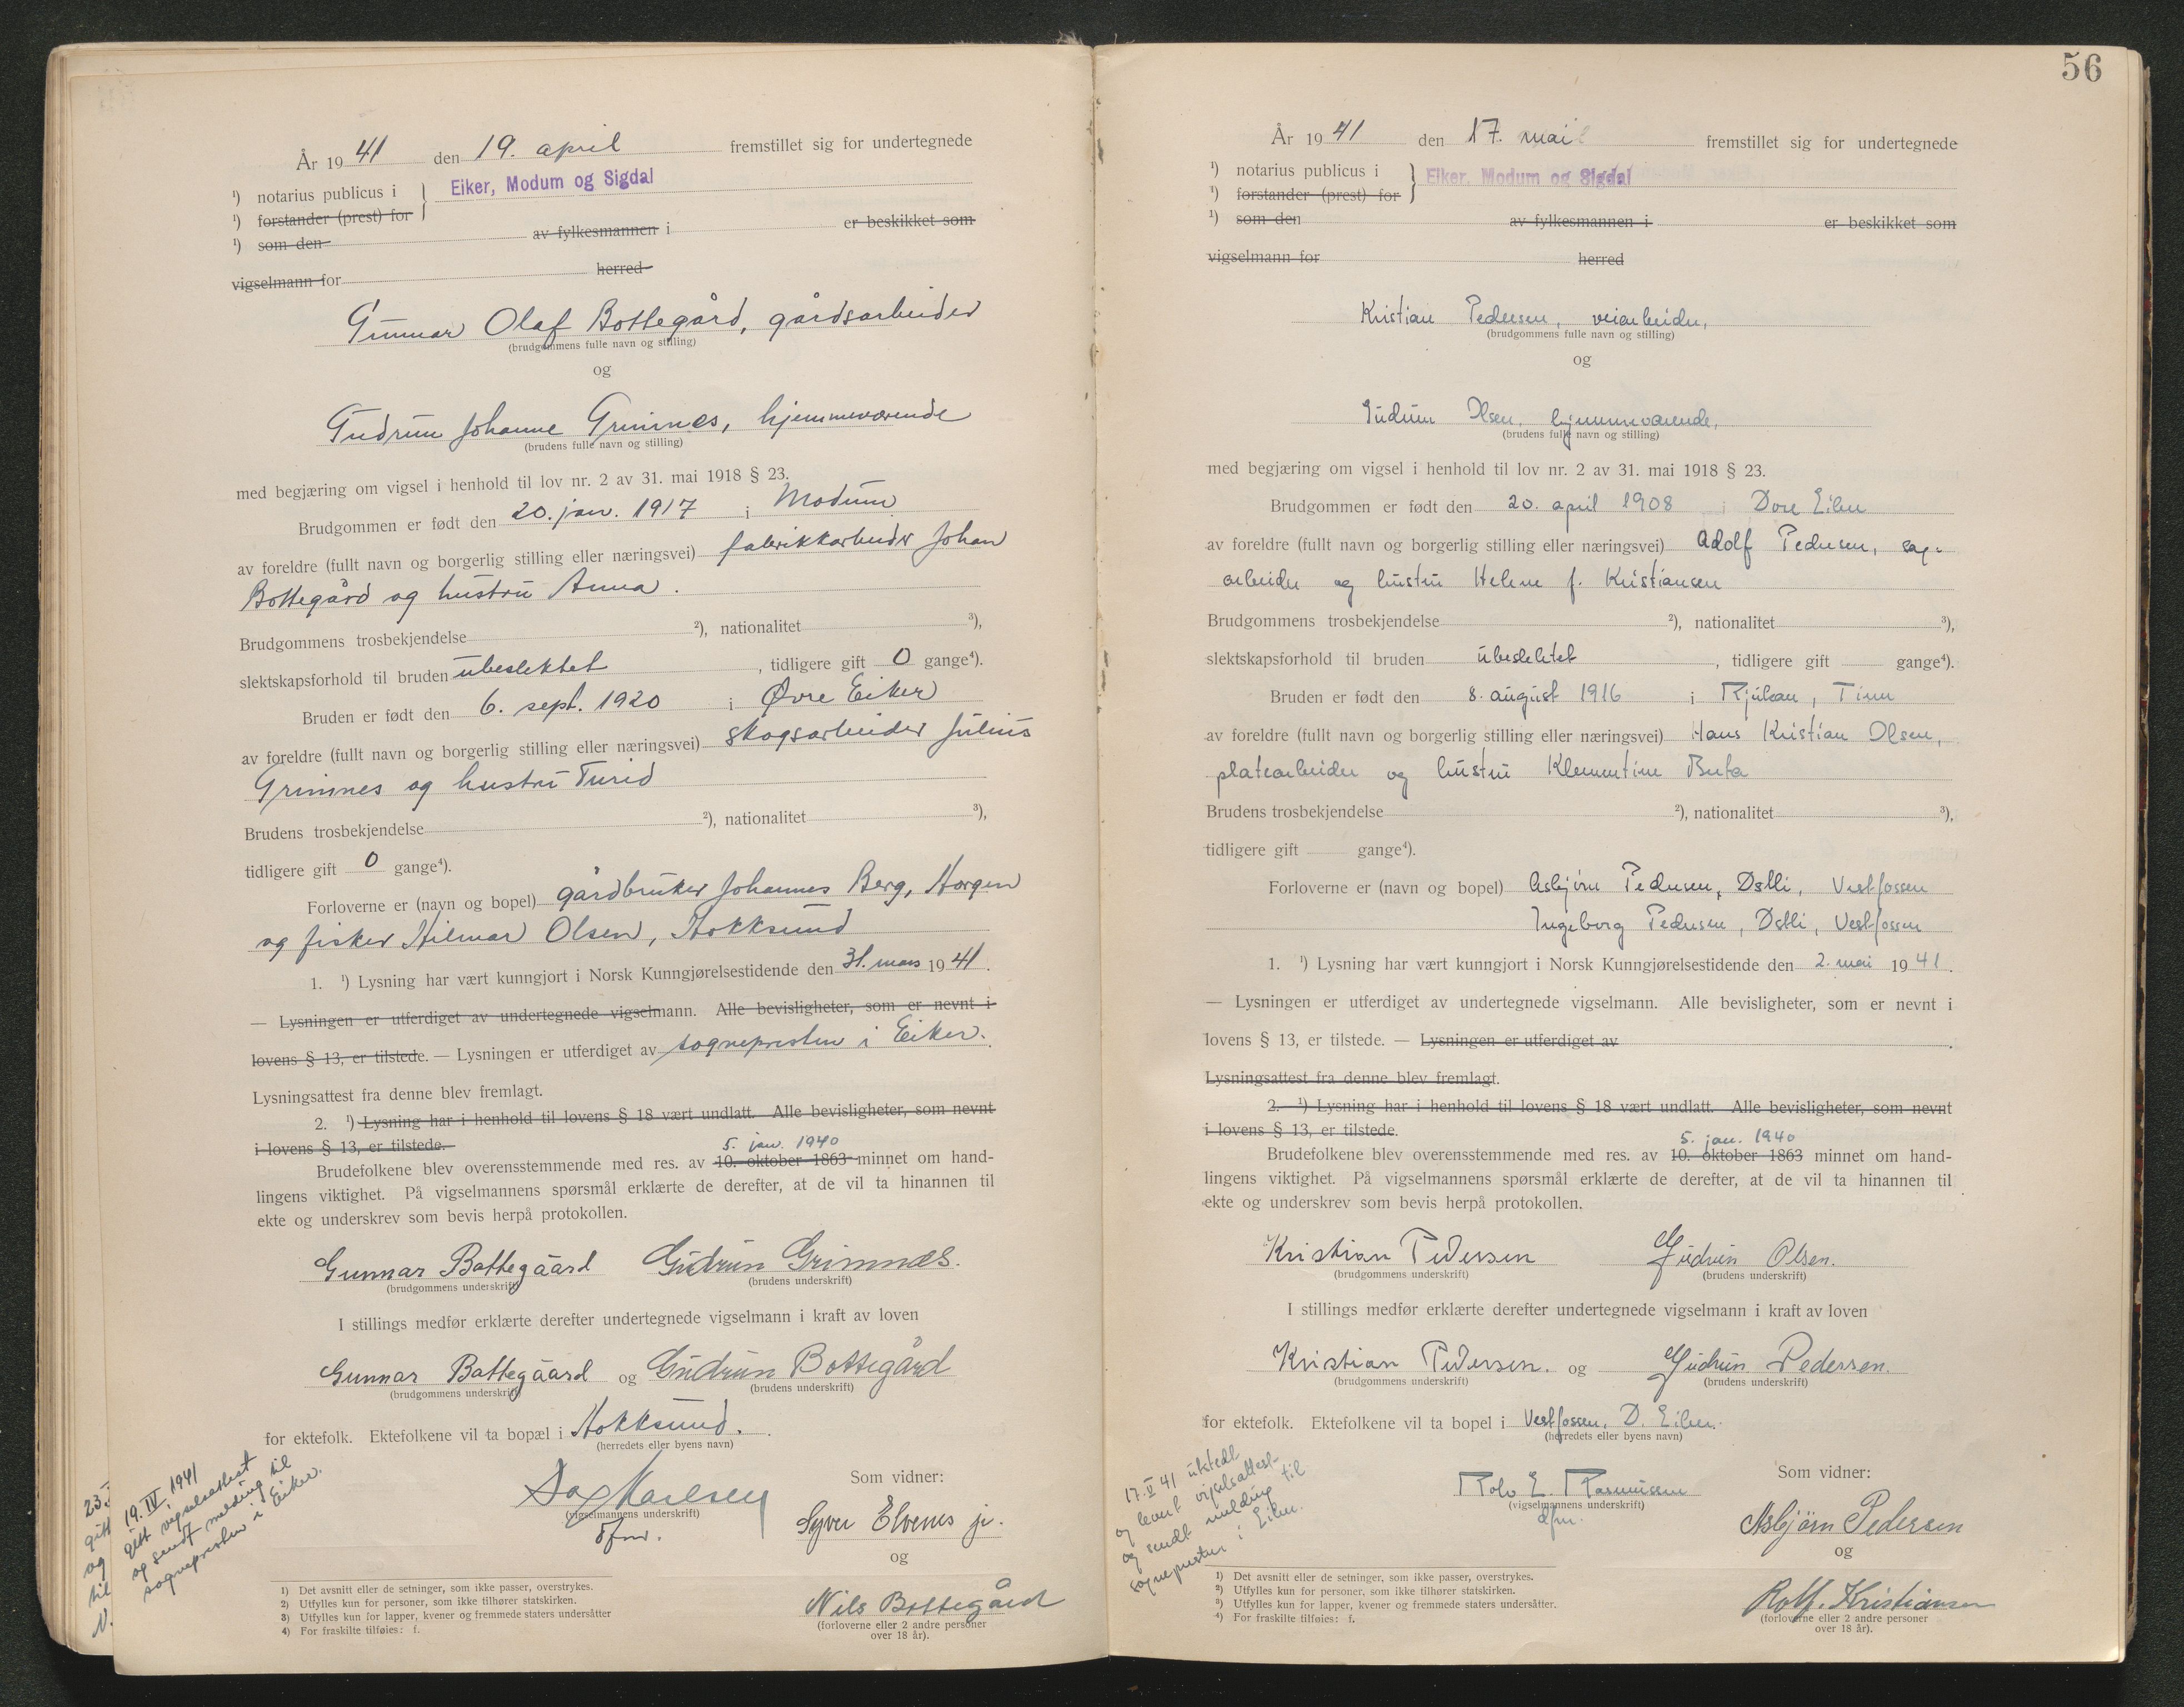 År 1941 den 19. april fremstillet sig for undertegnede
¹) notarius publicus i } Eiker, Modum og Sigdal
¹) forstander (prest) for
¹) som den av fylkesmannen i er beskikket som
vigselmann for herred
Gunnar Olaf Bottegård, gårdsarbeider
(brudgommens fulle navn og stilling)
og
Gudrun Johanne Grimnes, hjemmeværende
(brudens fulle navn og stilling)
med begjæring om vigsel i henhold til lov nr. 2 av 31. mai 1918 § 23.
Brudgommen er født den 20. jan. 1917 i Modum
av foreldre (fullt navn og borgerlig stilling eller næringsvei) fabrikkarbeider Johan
Bottegård og hustru Anna.
Brudgommens trosbekjendelse ²), nationalitet ³),
slektskapsforhold til bruden ubeslektet, tidligere gift 0 gange⁴).
Bruden er født den 6. sept. 1920 i Øvre Eiker
av foreldre (fullt navn og borgerlig stilling eller næringsvei) skogsarbeider Julius
Grimnes og hustru Turid
Brudens trosbekjendelse ²), nationalitet ³),
tidligere gift 0 gange⁴).
Forloverne er (navn og bopel) gårdbruker Johannes Berg, Horgen
og fisker Hilmar Olsen, Hokksund
1. ¹) Lysning har vært kunngjort i Norsk Kunngjørelsestidende den 31. mars 1941.
— Lysningen er utferdiget av undertegnede vigselmann. Alle bevisligheter, som er nevnt i
lovens § 13, er tilstede. — Lysningen er utferdiget av sognepresten i Eiker.
Lysningsattest fra denne blev fremlagt.
2. ¹) Lysning har i henhold til lovens § 18 vært undlatt. Alle bevisligheter, som nevnt
i lovens § 13, er tilstede.
5. jan. 1940
Brudefolkene blev overensstemmende med res. av 10. oktober 1863 minnet om hand-
lingens viktighet. På vigselmannens spørsmål erklærte de derefter, at de vil ta hinannen til
ekte og underskrev som bevis herpå protokollen.
Gunnar Bottegaard Gudrun Grimnes.
(brudgommens underskrift) (brudens underskrift)
I stillings medfør erklærte derefter undertegnede vigselmann i kraft av loven
Gunnar Bottegaard og Gudrun Bottegård
(brudgommens underskrift) (brudens underskrift)
for ektefolk. Ektefolkene vil ta bopæl i Hokksund.
(herredets eller byens navn)
Som vidner:
(vigselmannens underskrift)
Syver Elvenes jr.
og
Nils Bottegård
(forloverne eller 2 andre personer
over 18 år).
19. IV 1941
gitt vigselsattest
og sendt melding til
sognepresten i Eiker.
23.
gitt
og
til
N.
1) Det avsnitt eller de setninger, som ikke passer, overstrykes.
2) Utfylles kun for personer, som ikke tilhører statskirken.
3) Utfylles kun for lapper, kvener og fremmede staters undersåtter
4) For fraskilte tilføies: f.
56
År 1941 den 17. mai fremstillet sig for undertegnede
¹) notarius publicus i } Eiker, Modum og Sigdal
¹) forstander (prest) for
¹) som den av fylkesmannen i er beskikket som
vigselmann for herred
Kristian Pedersen, veiarbeider,
(brudgommens fulle navn og stilling)
og
Gudrun Olsen, hjemmeværende,
(brudens fulle navn og stilling)
med begjæring om vigsel i henhold til lov nr. 2 av 31. mai 1918 § 23.
Brudgommen er født den 20. april 1908 i Øvre Eiker
av foreldre (fullt navn og borgerlig stilling eller næringsvei) Adolf Pedersen, sag-
arbeider og hustru Helene f. Kristiansen
Brudgommens trosbekjendelse ²), nationalitet ³),
slektskapsforhold til bruden ubeslektet, tidligere gift gange⁴).
Bruden er født den 8. august 1916 i Rjukan, Tinn
av foreldre (fullt navn og borgerlig stilling eller næringsvei) Hans Kristian Olsen,
platearbeider og hustru Klementine Berta
Brudens trosbekjendelse ²), nationalitet ³),
tidligere gift gange⁴).
Forloverne er (navn og bopel) Asbjørn Pedersen, Østli, Vestfossen
Ingeborg Pedersen, Østli, Vestfossen
1. ¹) Lysning har vært kunngjort i Norsk Kunngjørelsestidende den 2. mai 1941.
— Lysningen er utferdiget av undertegnede vigselmann. Alle bevisligheter, som er nevnt i
lovens § 13, er tilstede. — Lysningen er utferdiget av
Lysningsattest fra denne blev fremlagt.
2. ¹) Lysning har i henhold til lovens § 18 vært undlatt. Alle bevisligheter, som nevnt
i lovens § 13, er tilstede.
5. jan. 1940
Brudefolkene blev overensstemmende med res. av 10. oktober 1863 minnet om hand-
lingens viktighet. På vigselmannens spørsmål erklærte de derefter, at de vil ta hinannen til
ekte og underskrev som bevis herpå protokollen.
Kristian Pedersen Gudrun Olsen.
(brudgommens underskrift) (brudens underskrift)
I stillings medfør erklærte derefter undertegnede vigselmann i kraft av loven
Kristian Pedersen. og Gudrun Pedersen.
(brudgommens underskrift) (brudens underskrift)
for ektefolk. Ektefolkene vil ta bopel i Vestfossen, Ø. Eiker.
(herredets eller byens navn)
Som vidner:
Rolv E. Rasmussen
(vigselmannens underskrift)
dfm.
Asbjørn Pedersen
og
Rolf. Kristiansen
(forloverne eller 2 andre personer
over 18 år).
17. V 41 utstedt
og levert vigselsattest
og sendt melding til
sognepresten i Eiker.
1) Det avsnitt eller de setninger, som ikke passer, overstrykes.
2) Utfylles kun for personer, som ikke tilhører statskirken.
3) Utfylles kun for lapper, kvener og fremmede staters undersåtter.
4) For fraskilte tilføies: f.